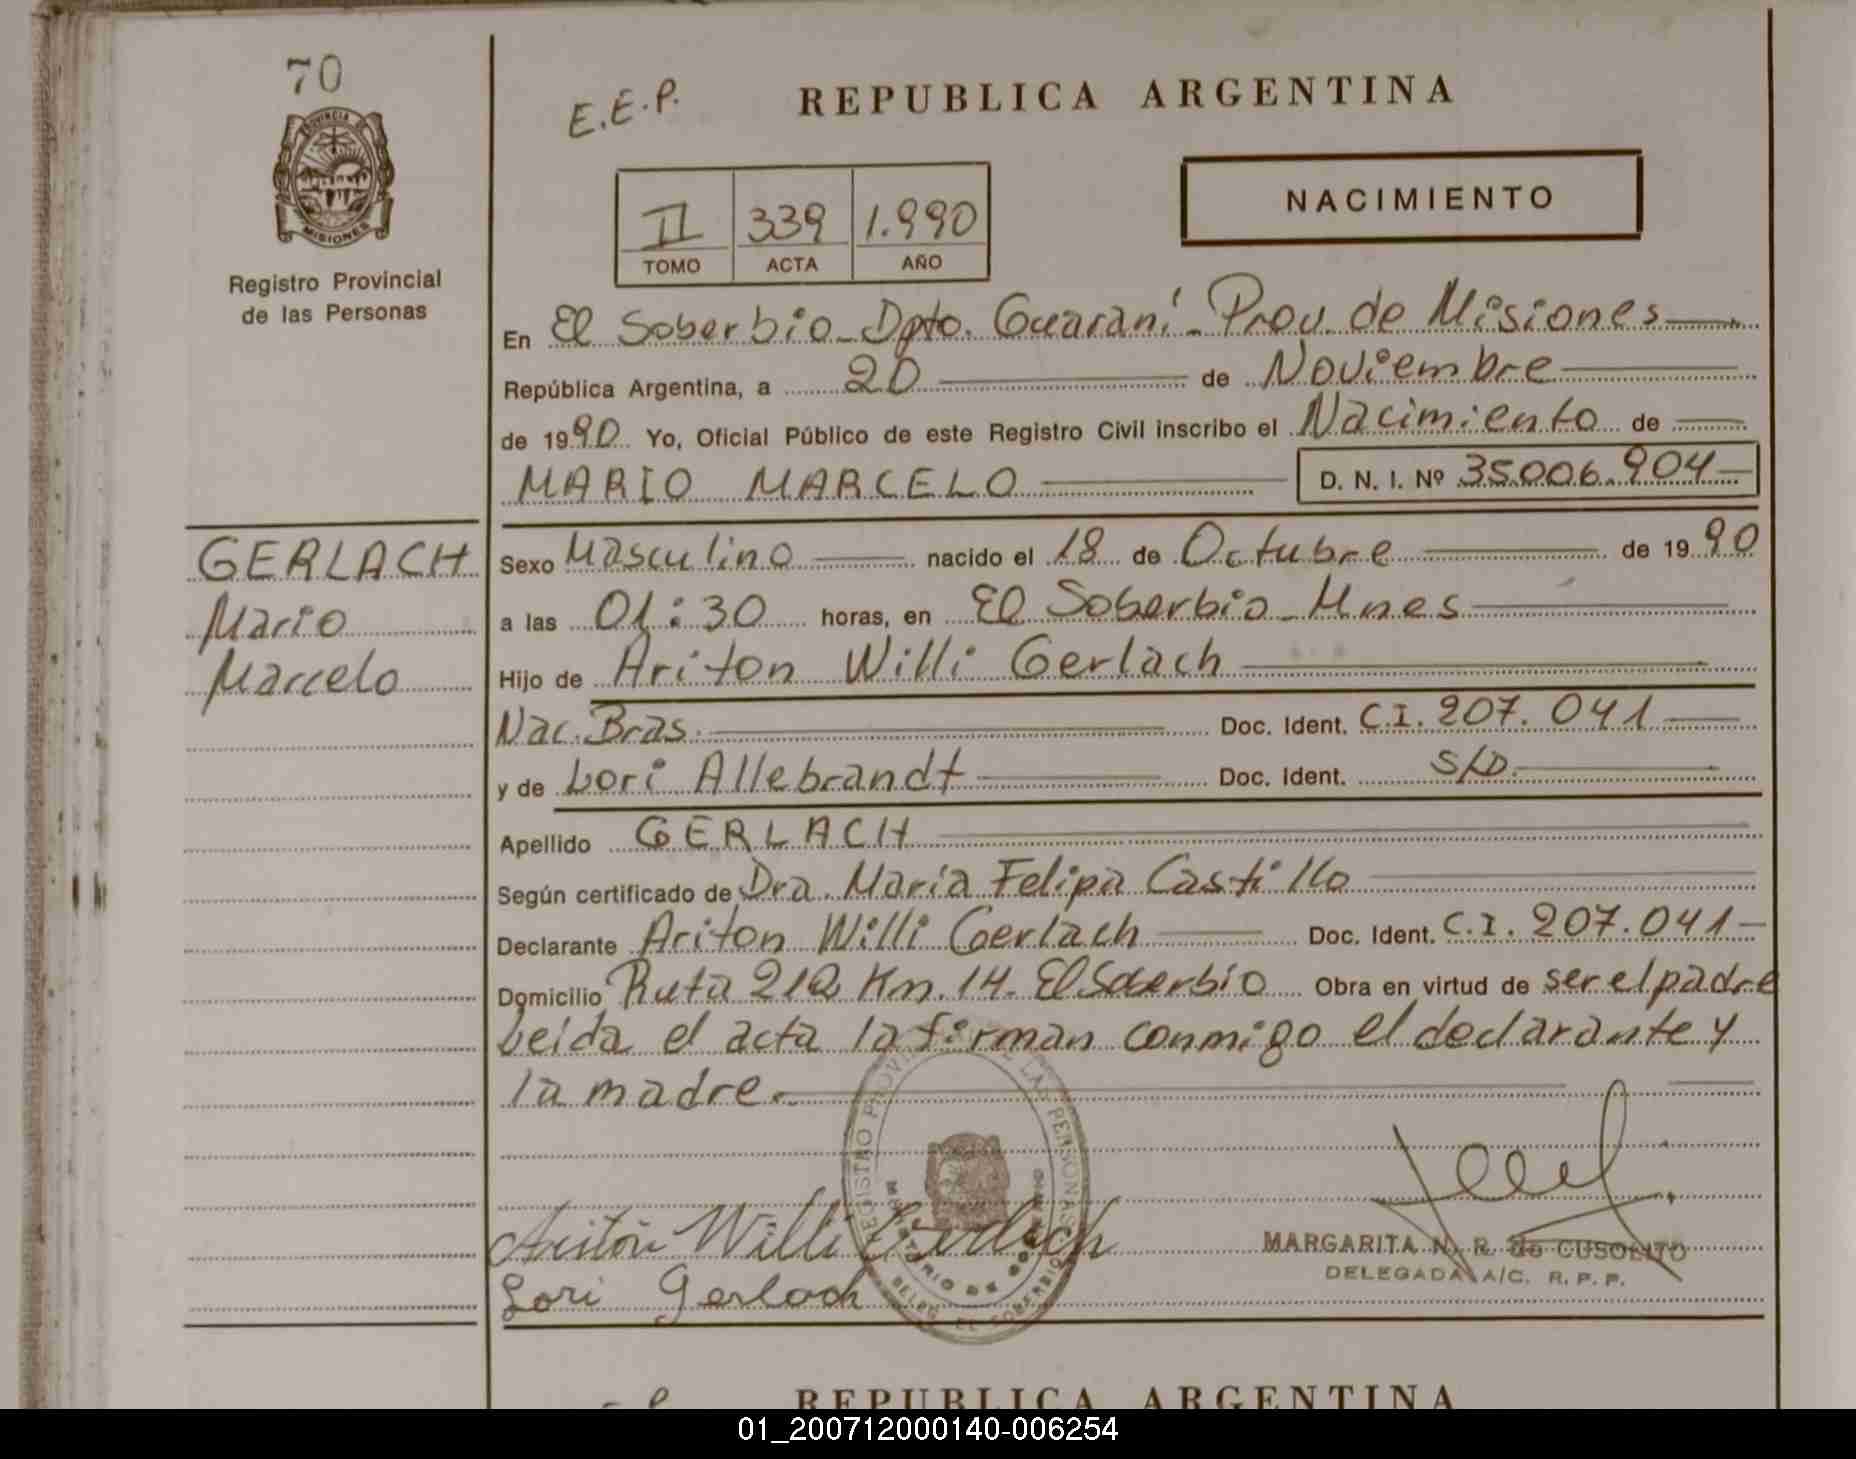 70
E.E.P.
REPUBLICA ARGENTINA
PROVINCIA DE
MISIONES
Registro Provincial
de las Personas
II 339 1.990
TOMO ACTA AÑO
NACIMIENTO
En El Soberbio_Dpto. Guaraní_Prov. de Misiones
República Argentina, a 20 de Noviembre
de 1990 Yo, Oficial Público de este Registro Civil inscribo el Nacimiento de
MARIO MARCELO D. N. I. Nº 35.006.904
GERLACH
Mario
Marcelo
Sexo Masculino nacido el 18 de Octubre de 1990
a las 01:30 horas, en El Soberbio_Mnes
Hijo de Ariton Willi Gerlach
Nac. Bras. Doc. Ident. C.I. 207.041
y de Lori Allebrandt Doc. Ident. S/D.
Apellido GERLACH
Según certificado de Dra. María Felipa Castillo
Declarante Ariton Willi Gerlach Doc. Ident. C.I. 207.041
Domicilio Ruta 212 Km. 14. El Soberbio Obra en virtud de ser el padre
Leida el acta la firman conmigo el declarante y
la madre.
REGISTRO PROVINCIAL DE LAS PERSONAS
MINISTERIO DE GOBIERNO
DELEG. EL SOBERBIO
Ariton Willi Gerlach
Lori Gerlach
MARGARITA N. R. de CUSOLITO
DELEGADA A/C. R. P. P.
REPUBLICA ARGENTINA
01_200712000140-006254